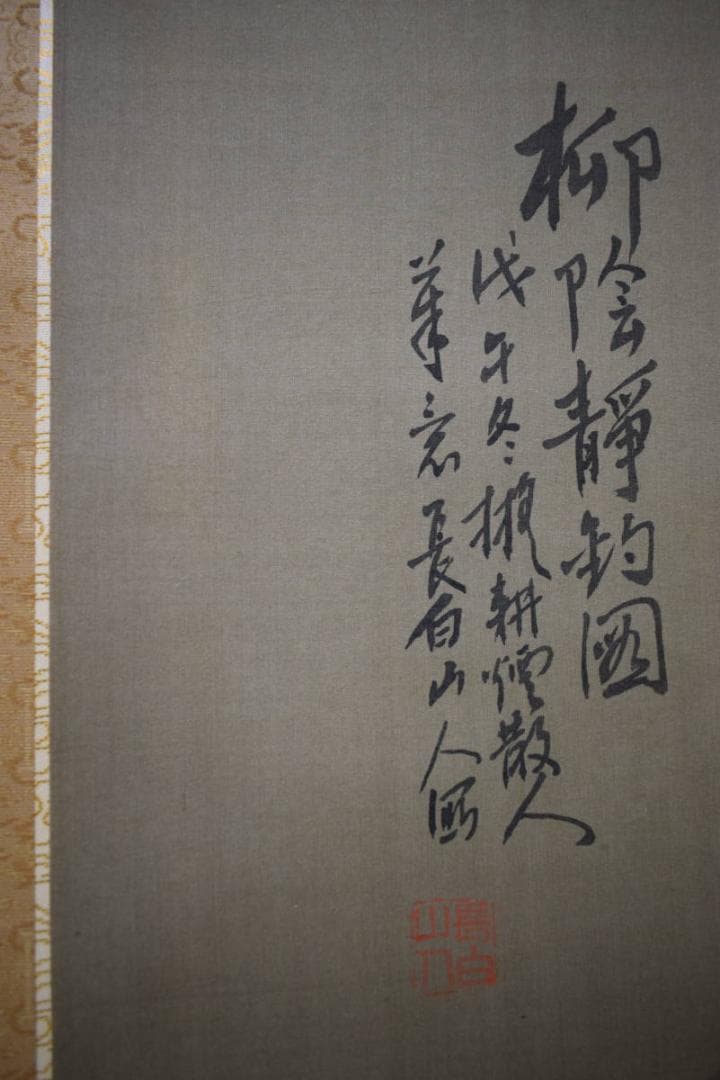 柳陰靜釣圖
戊午冬擬耕煙散人
筆意長白山人
長白
山人